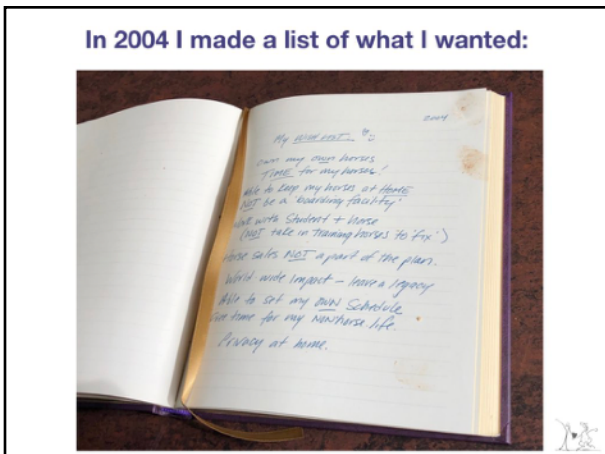 In 2004 I made a list of what I wanted:
2004
My WISH LIST
own my own horses
TIME for my horses!
Able to keep my horses at HOME
NOT be a 'boarding facility'
Work with Student + horse
(NOT take in training horses 'to fix')
Horse sales NOT a part of the plan.
World-wide Impact - leave a legacy
Able to set my OWN Schedule
time for my NONhorse life.
Privacy at home.